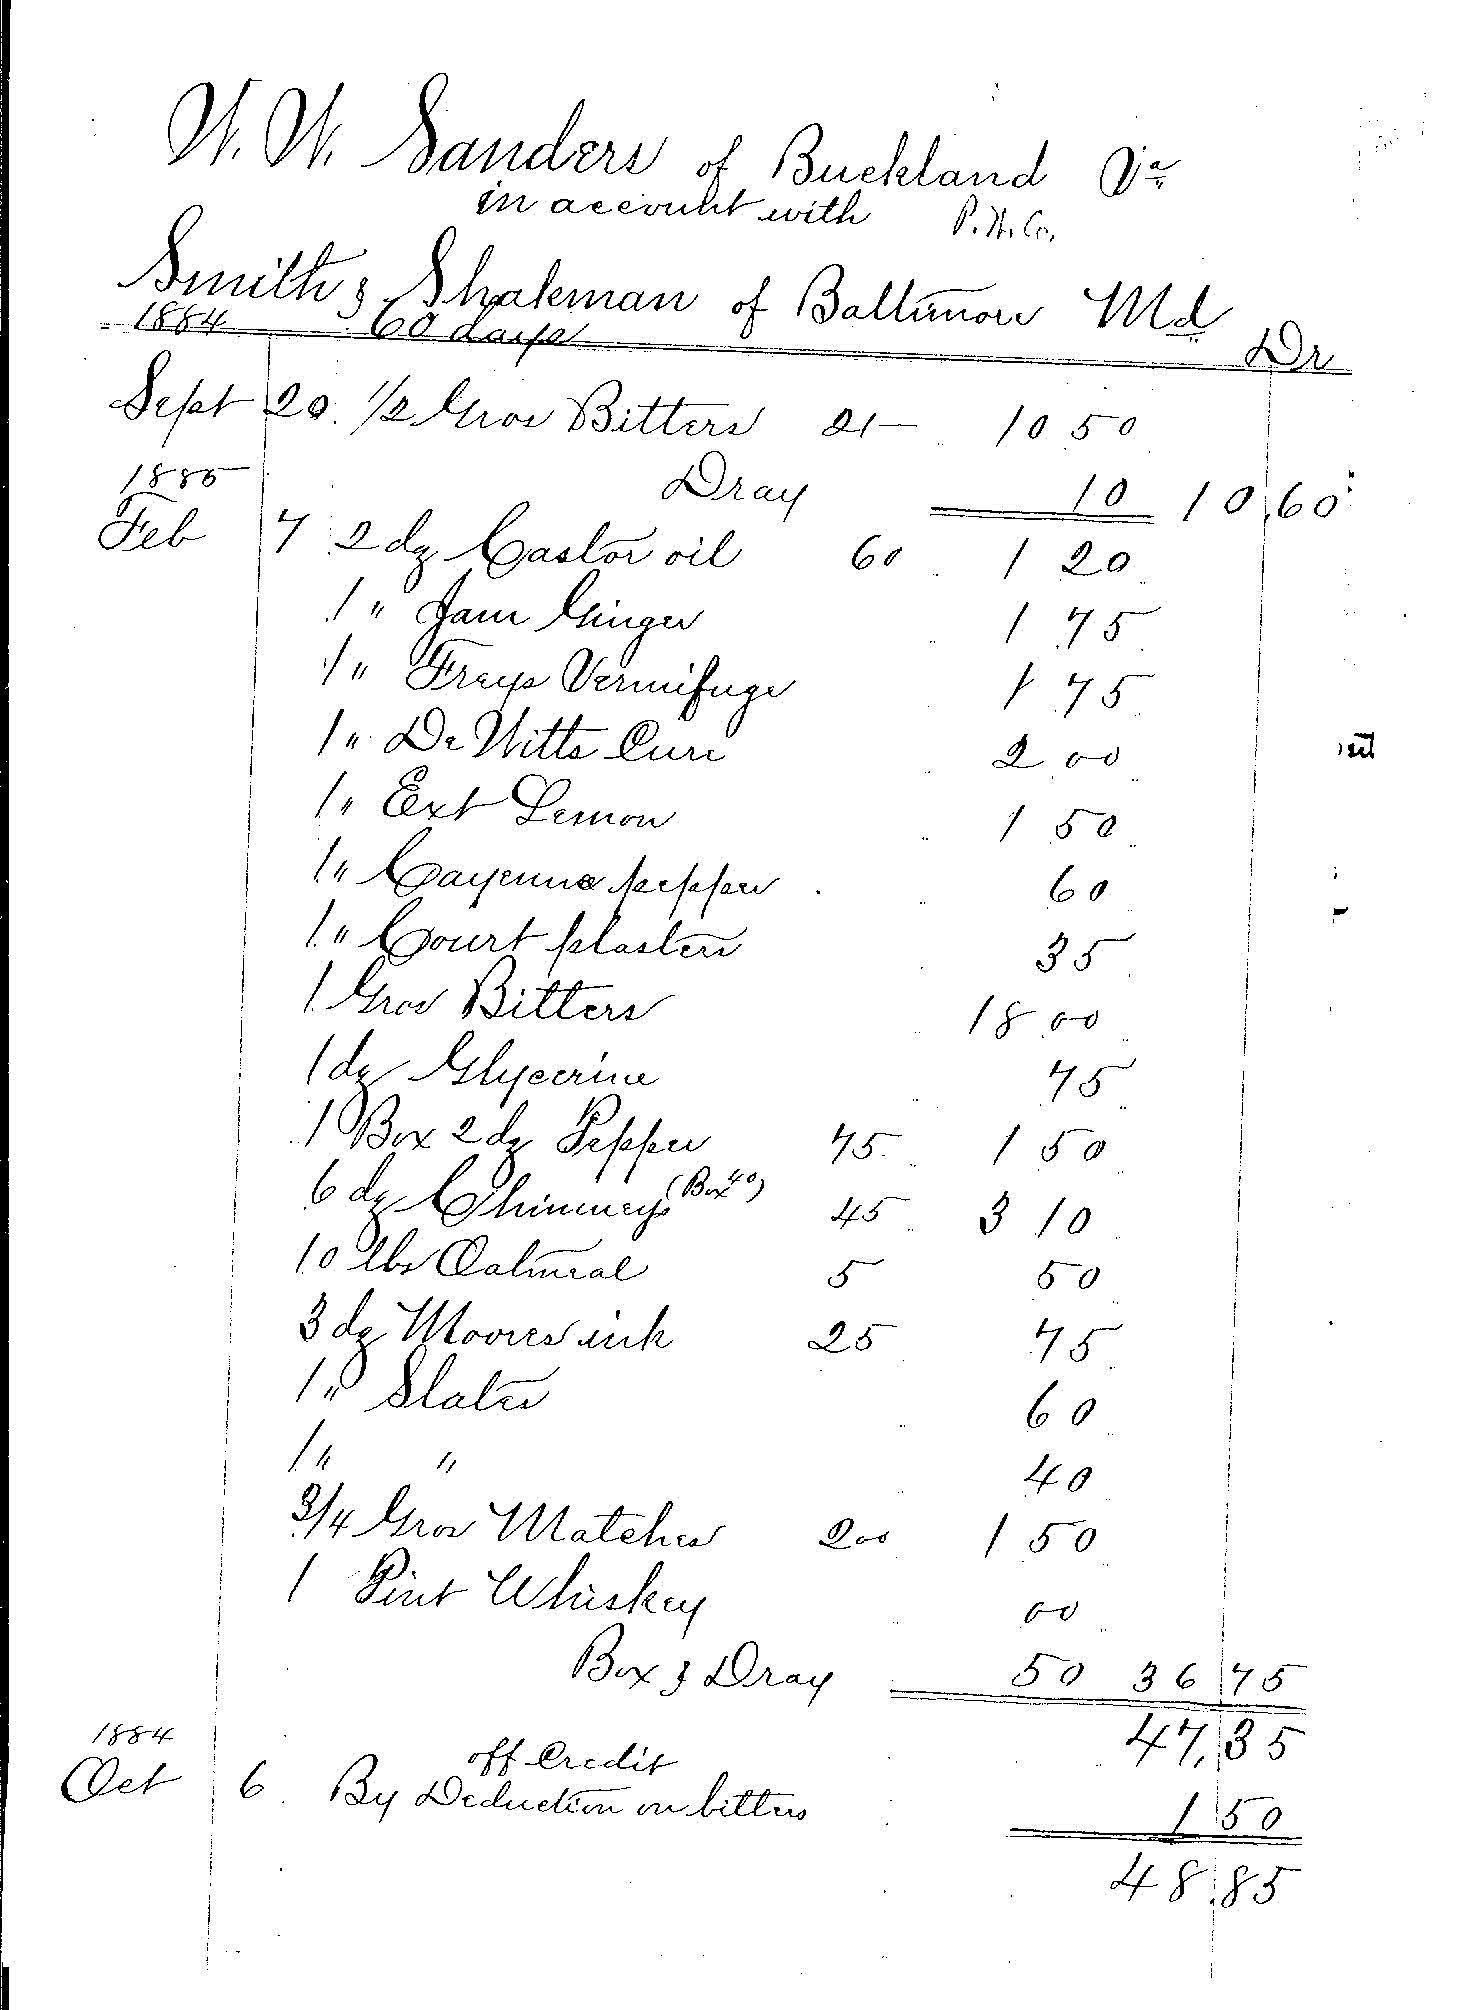 W. W. Sanders of Buckland Va
in account with P. H. Co.
Smith & Shakman of Baltimore Md
1884 60 days Dr
Sept 20. 1/2 Gros Bitters 21— 10 50
1885 Dray 10 10,60
Feb 7 2 dz Castor oil 60 1 20
1 " Jam Ginger 1 75
1 " Freys Vermifuge 1 75
1 " De Witts Cure 2 00
1 " Ext Lemon 1 50
1 " Cayenne pepper 60
1 " Court plasters 35
1 Gros Bitters 18 00
1 dz Glycerine 75
1 Box 2 dz Pepper 75 1 50
6 dz Chimneys (Box 40) 45 3 10
10 lbs Oatmeal 5 50
3 dz Moores ink 25 75
1 " Slates 60
1 " " 40
3/4 Gros Matches 200 1 50
1 Pint Whiskey 00
Box & Dray 50 36 75
47,35
1884
off Credit
Oct 6. By Deduction on bitters 1 50
48.85